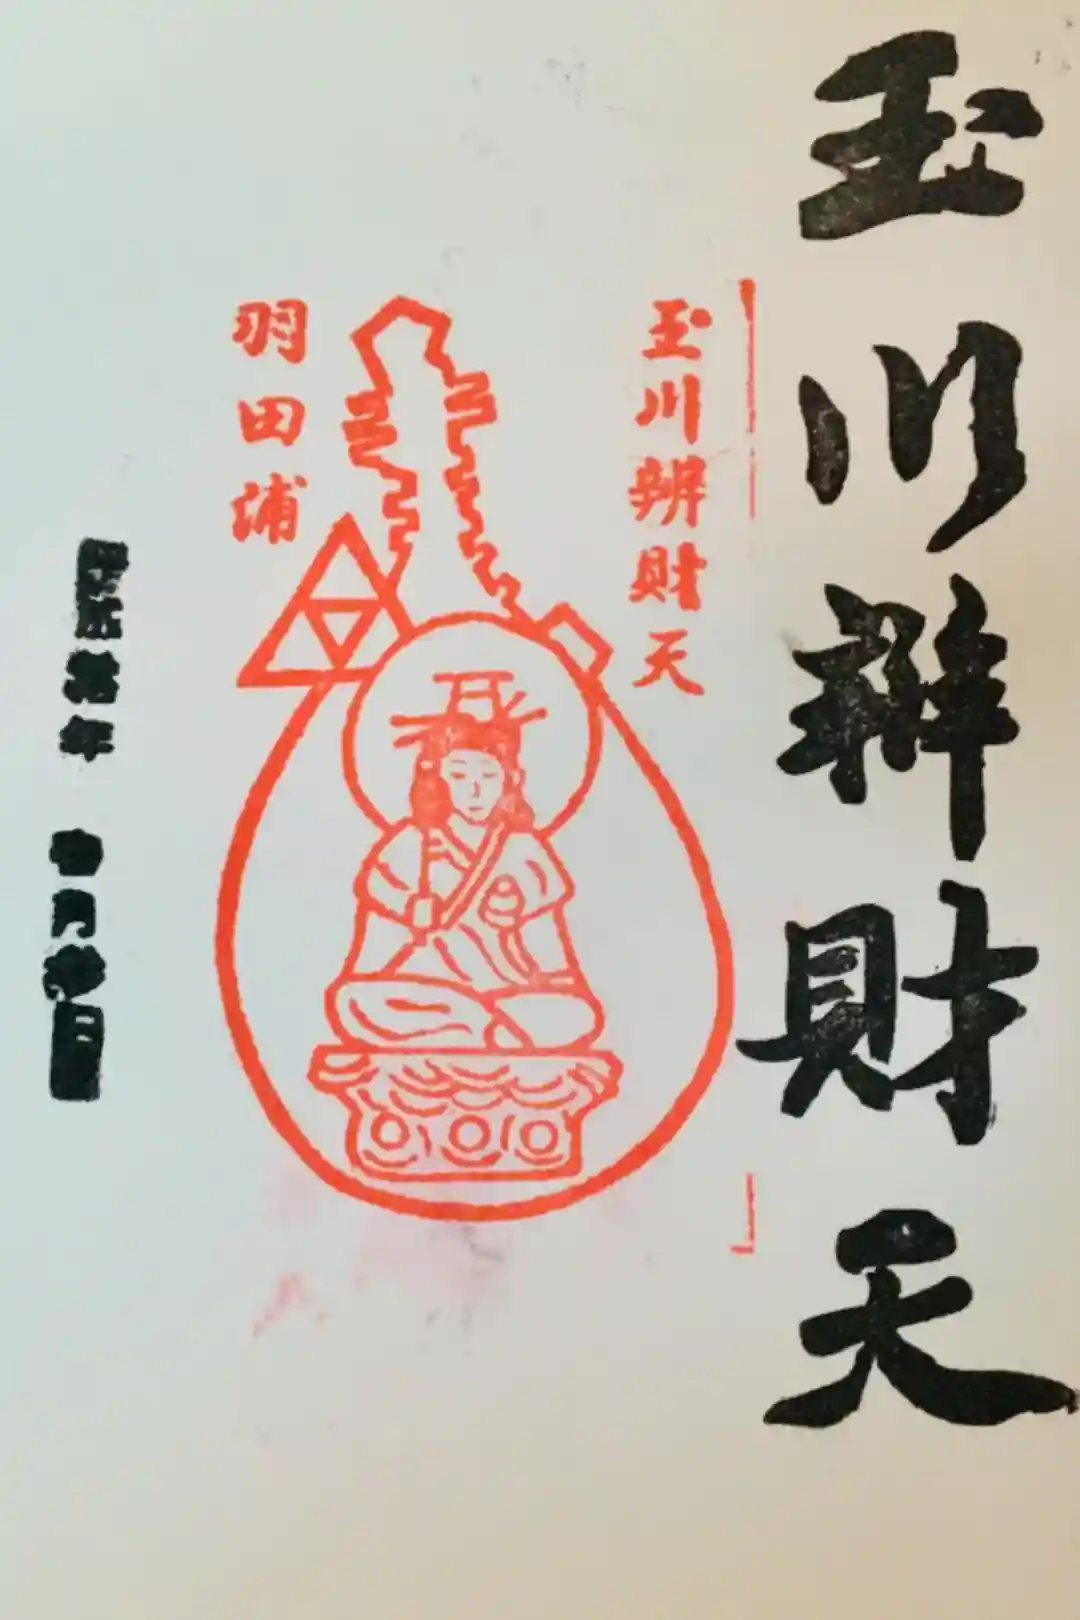 玉川辨財天
玉川辨財天
羽田浦
年 月 日